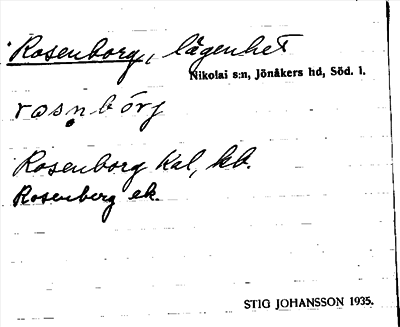 Rosenborg, lägenhet
Nikolai s:n, Jönåkers hd, Söd. l.
rosn̥bórj
Rosenborg Kal, hb.
Rosenberg ek.
STIG JOHANSSON 1935.